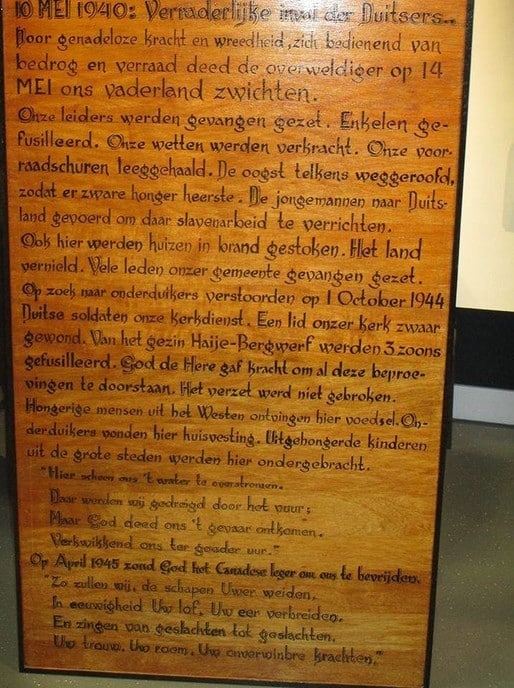 10 MEI 1940: Verraderlijke inval der Duitsers..
Door genadeloze kracht en wreedheid, zich bedienend van
bedrog en verraad deed de overweldiger op 14
MEI ons vaderland zwichten.
Onze leiders werden gevangen gezet. Enkelen ge-
fusilleerd. Onze wetten werden verkracht. Onze voor-
raadschuren leeggehaald. De oogst telkens weggeroofd,
zodat er zware honger heerste. De jongemannen naar Duits-
land gevoerd om daar slavenarbeid te verrichten.
Ook hier werden huizen in brand gestoken. Het land
vernield. Vele leden onzer gemeente gevangen gezet.
Op zoek naar onderduikers verstoorden op 1 October 1944
Duitse soldaten onze kerkdienst. Een lid onzer kerk zwaar
gewond. Van het gezin Haije-Bergwerf werden 3 zoons
gefusilleerd. God de Here gaf kracht om al deze beproe-
vingen te doorstaan. Het verzet werd niet gebroken.
Hongerige mensen uit het Westen ontvingen hier voedsel. On-
derduikers vonden hier huisvesting. Uitgehongerde kinderen
uit de grote steden werden hier ondergebracht.
"Hier scheen ons 't water te overstromen.
Daar werden wij gedreigd door het vuur;
Maar God deed ons 't gevaar ontkomen.
Verkwikkend ons ter goeder uur."
Op April 1945 zond God het Canadese leger om ons te bevrijden.
"Zo zullen wij, de schapen Uwer weiden,
In eeuwigheid Uw lof, Uw eer verbreiden,
En zingen van geslachten tot geslachten,
Uw trouw, Uw roem, Uw onverwinbre krachten."